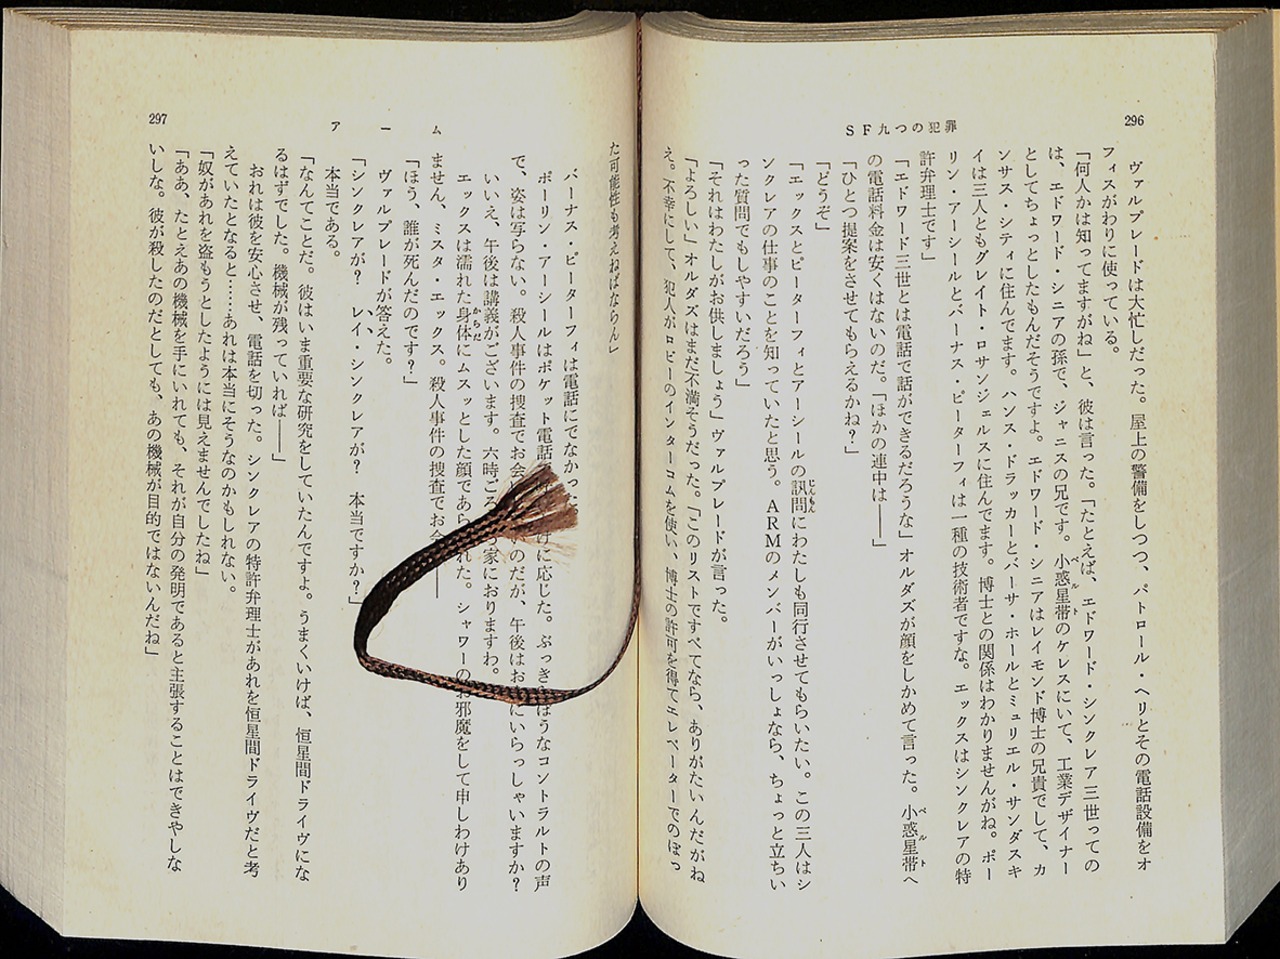 296
SF九つの犯罪
ヴァルプレードは大忙しだった。屋上の警備をしつつ、パトロール・ヘリとその電話設備をオ
フィスがわりに使っている。
「何人かは知ってますがね」と、彼は言った。「たとえば、エドワード・シンクレア三世っての
は、エドワード・シニアの孫で、ジャニスの兄です。小惑星帯のケレスにいて、工業デザイナー
としてちょっとしたもんだそうですよ。エドワード・シニアはレイモンド博士の兄貴でして、カ
ンサス・シティに住んでます。ハンス・ドラッカーとバーサ・ホールとミュリエル・サンダスキ
イは三人ともグレイト・ロサンジェルスに住んでます。博士との関係はわかりませんがね。ポー
リン・アーシールとバーナス・ピーターフィは一種の技術者ですな。エックスはシンクレアの特
許弁理士です」
「エドワード三世とは電話で話ができるだろうな」オルダズが顔をしかめて言った。小惑星帯へ
の電話料金は安くはないのだ。「ほかの連中は——」
「ひとつ提案をさせてもらえるかね？」
「どうぞ」
「エックスとピーターフィとアーシールの訊問にわたしも同行させてもらいたい。この三人はシ
ンクレアの仕事のことを知っていたと思う。ARMのメンバーがいっしょなら、ちょっと立ちい
った質問でもしやすいだろう」
「それはわたしがお供しましょう」ヴァルプレードが言った。
「よろしい」オルダズはまだ不満そうだった。「このリストですべてなら、ありがたいんだがね
え。不幸にして、犯人がロビーのインターコムを使い、博士の許可を得てエレベーターでのぼっ
297
アーム
た可能性も考えねばならん」
バーナス・ピーターフィは電話にでなかった
ポーリン・アーシールはポケット電話 けに応じた。ぶっき ぼうなコントラルトの声
で、姿は写らない。殺人事件の捜査でお会 のだが、午後はお にいらっしゃいますか？
いいえ、午後は講義がございます。六時ごろ 家におりますわ。
エックスは濡れた身体にムスッとした顔であら れた。シャワーのお邪魔をして申しわけあり
ません、ミスタ・エックス。殺人事件の捜査でお会 ——
「ほう、誰が死んだのです？」
ヴァルプレードが答えた。
「シンクレアが？　レイ・シンクレアが？　本当ですか？」
本当である。
「なんてことだ。彼はいま重要な研究をしていたんですよ。うまくいけば、恒星間ドライヴにな
るはずでした。機械が残っていれば——」
おれは彼を安心させ、電話を切った。シンクレアの特許弁理士があれを恒星間ドライヴだと考
えていたとなると……あれは本当にそうなのかもしれない。
「奴があれを盗もうとしたようには見えませんでしたね」
「ああ、たとえあの機械を手にいれても、それが自分の発明であると主張することはできやしな
いしな。彼が殺したのだとしても、あの機械が目的ではないんだね」